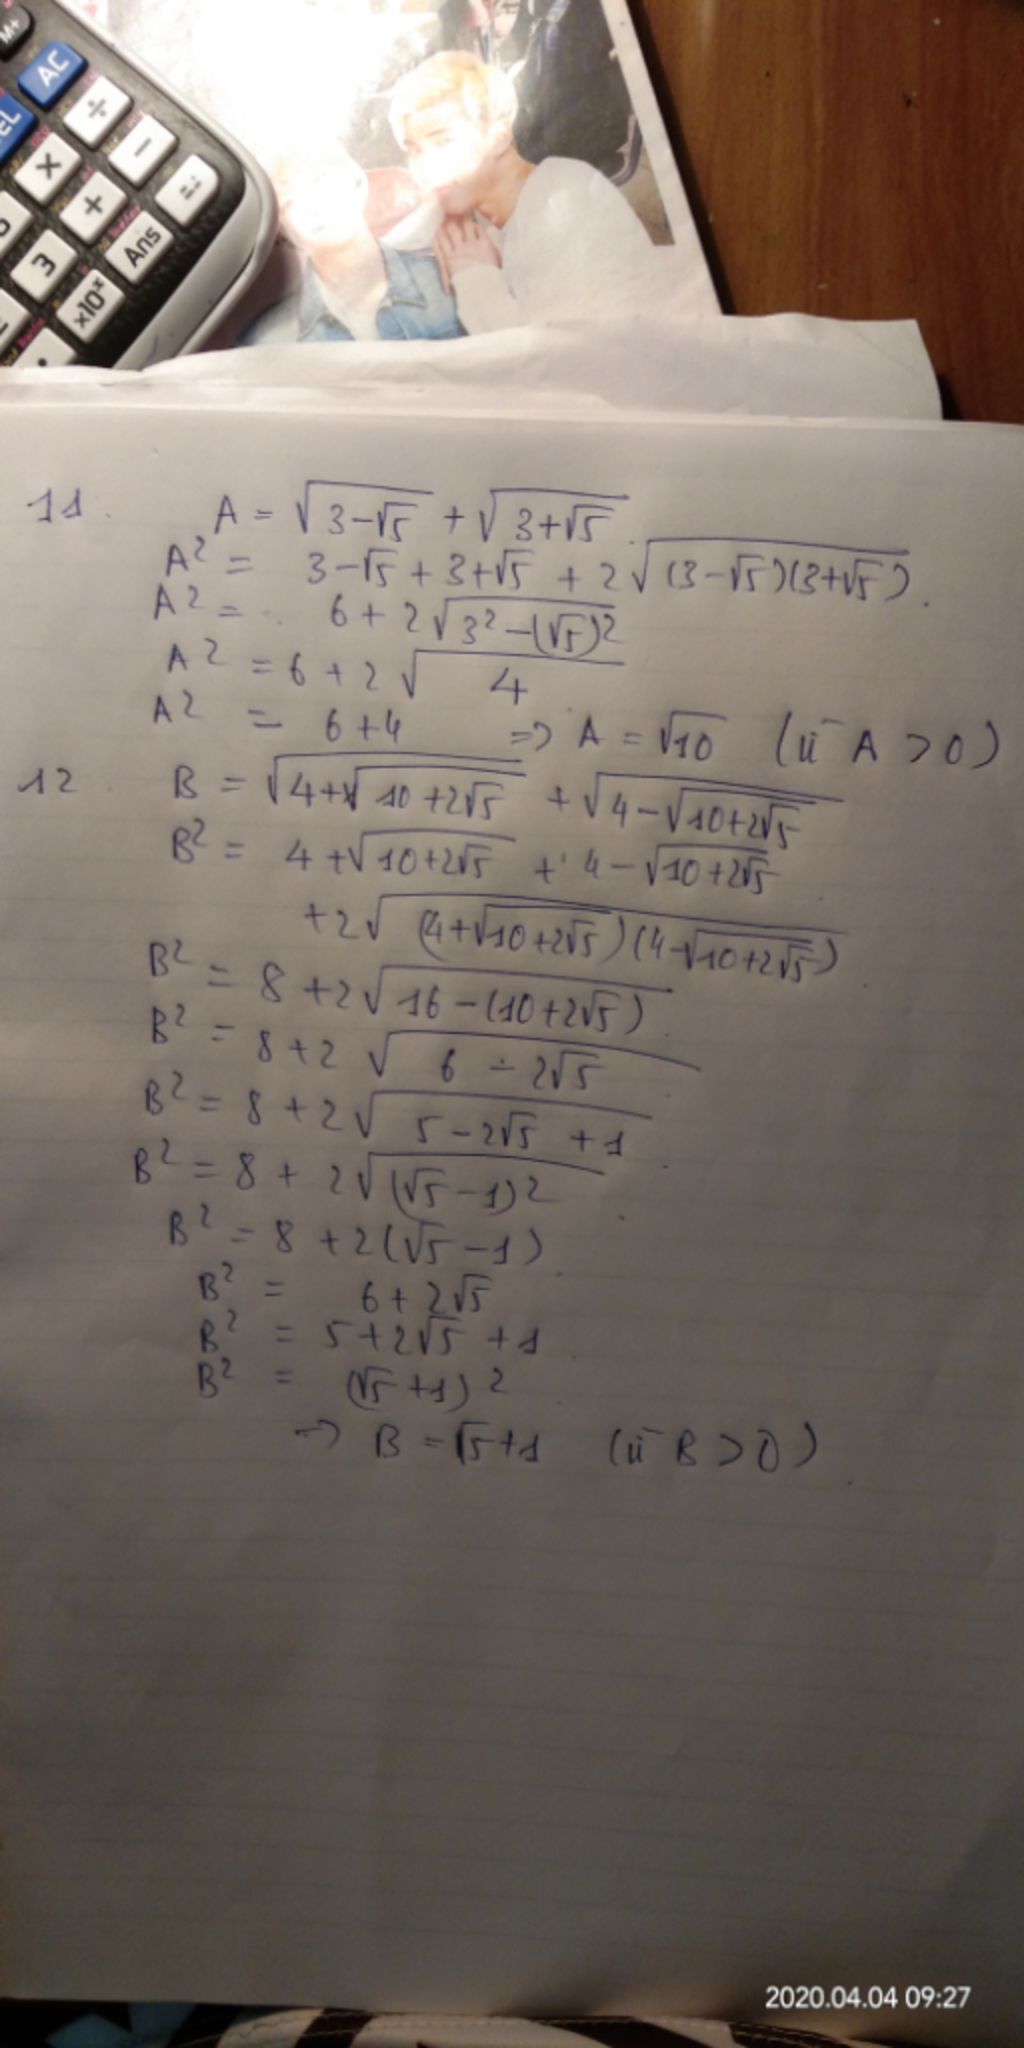 M+
AC
DEL
÷
×
−
+
=
3
Ans
×10ˣ
11. A = √(3−√5) + √(3+√5).
A² = 3−√5 + 3+√5 + 2√((3−√5)(3+√5)).
A² = 6 + 2√(3²−(√5)²)
A² = 6 + 2√4
A² = 6+4 => A = √10 (vì A > 0)
12 B = √(4+√(10+2√5)) + √(4−√(10+2√5))
B² = 4+√(10+2√5) + 4−√(10+2√5)
+2√((4+√(10+2√5))(4−√(10+2√5)))
B² = 8+2√(16−(10+2√5))
B² = 8+2√(6−2√5)
B² = 8+2√(5−2√5+1)
B² = 8+2√((√5−1)²)
B² = 8+2(√5−1)
B² = 6+2√5
B² = 5+2√5+1
B² = (√5+1)²
=> B = √5+1 (vì B > 0)
2020.04.04 09:27